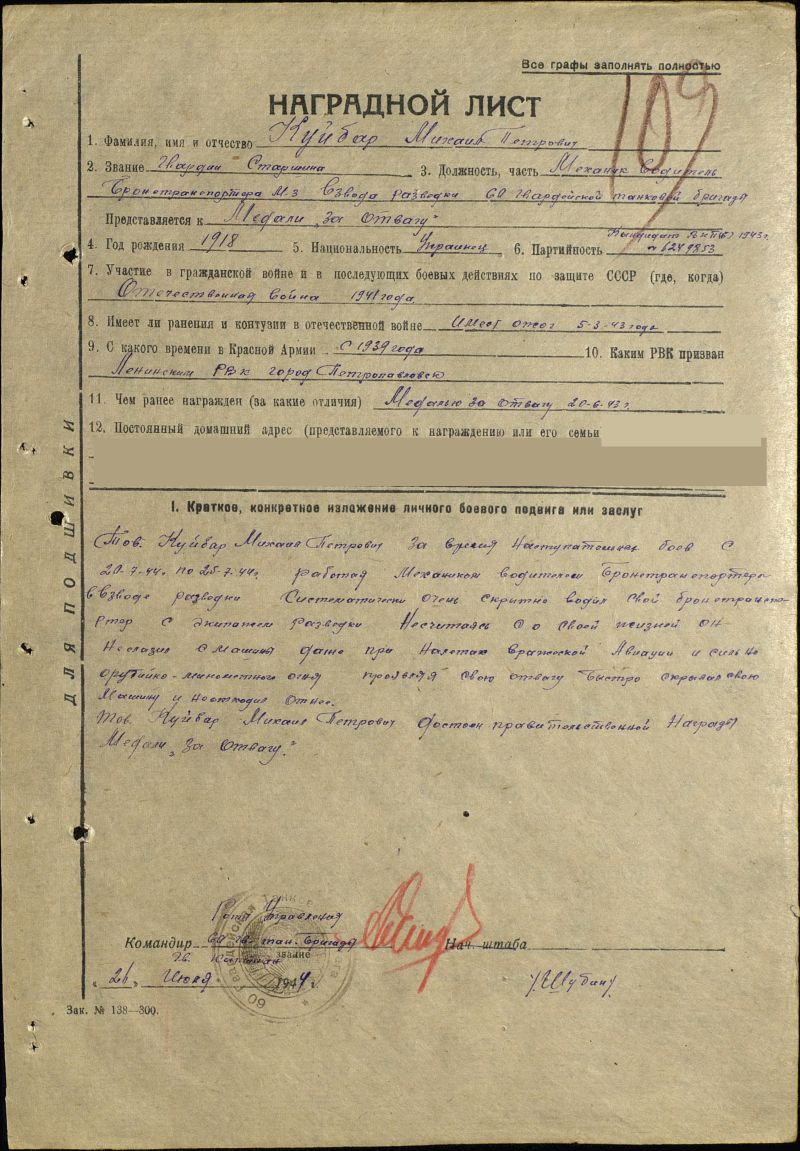 Все графы заполнять полностью
109
НАГРАДНОЙ ЛИСТ
1. Фамилия, имя и отчество Куйбар Михаил Петрович
2. Звание Гвардии Старшина 3. Должность, часть Механик Водитель
Бронетранспортера М-3 Взвода разведки 60 Гвардейской танковой бригады
Представляется к Медали „За Отвагу"
4. Год рождения 1918 5. Национальность Украинец 6. Партийность Кандидат ВКП(б) 1943г.
№ 6249853
7. Участие в гражданской войне и в последующих боевых действиях по защите СССР (где, когда)
Отечественная война 1941 года
8. Имеет ли ранения и контузии в отечественной войне Имеет ожог 5-3-43 года
9. С какого времени в Красной Армии С 1939 года 10. Каким РВК призван
Ленинским РВК город Петропавловск
11. Чем ранее награжден (за какие отличия) Медалью за Отвагу 20-6-43 г.
12. Постоянный домашний адрес (представляемого к награждению или его семьи
I. Краткое, конкретное изложение личного боевого подвига или заслуг
Тов. Куйбар Михаил Петрович За время Наступательных боев С
20-7-44г. по 25-7-44г. работая Механиком водителем Бронетранспортера
в Взводе разведки Систематически очень скрытно водил Свой бронетранспо-
ртер С экипажем разведки Несчитаясь Со Своей жизней ОН
Неслазил С машины даже при Налетах вражеской Авиации и сильно
орудийко-минометного огня проявляя свою отвагу Быстро скрывал свою
Машину и Неотходил Отнее.
Тов. Куйбар Михаил Петрович достоен правительственной Награды
Медали „За Отвагу."
Роты Управления
Командир 60 Гв. тан. бригады Нач. штаба
Гв. Капитан звание
„26" Июля 1944 г. /Шубин/
Зак. № 138—300.
ДЛЯ ПОДШИВКИ